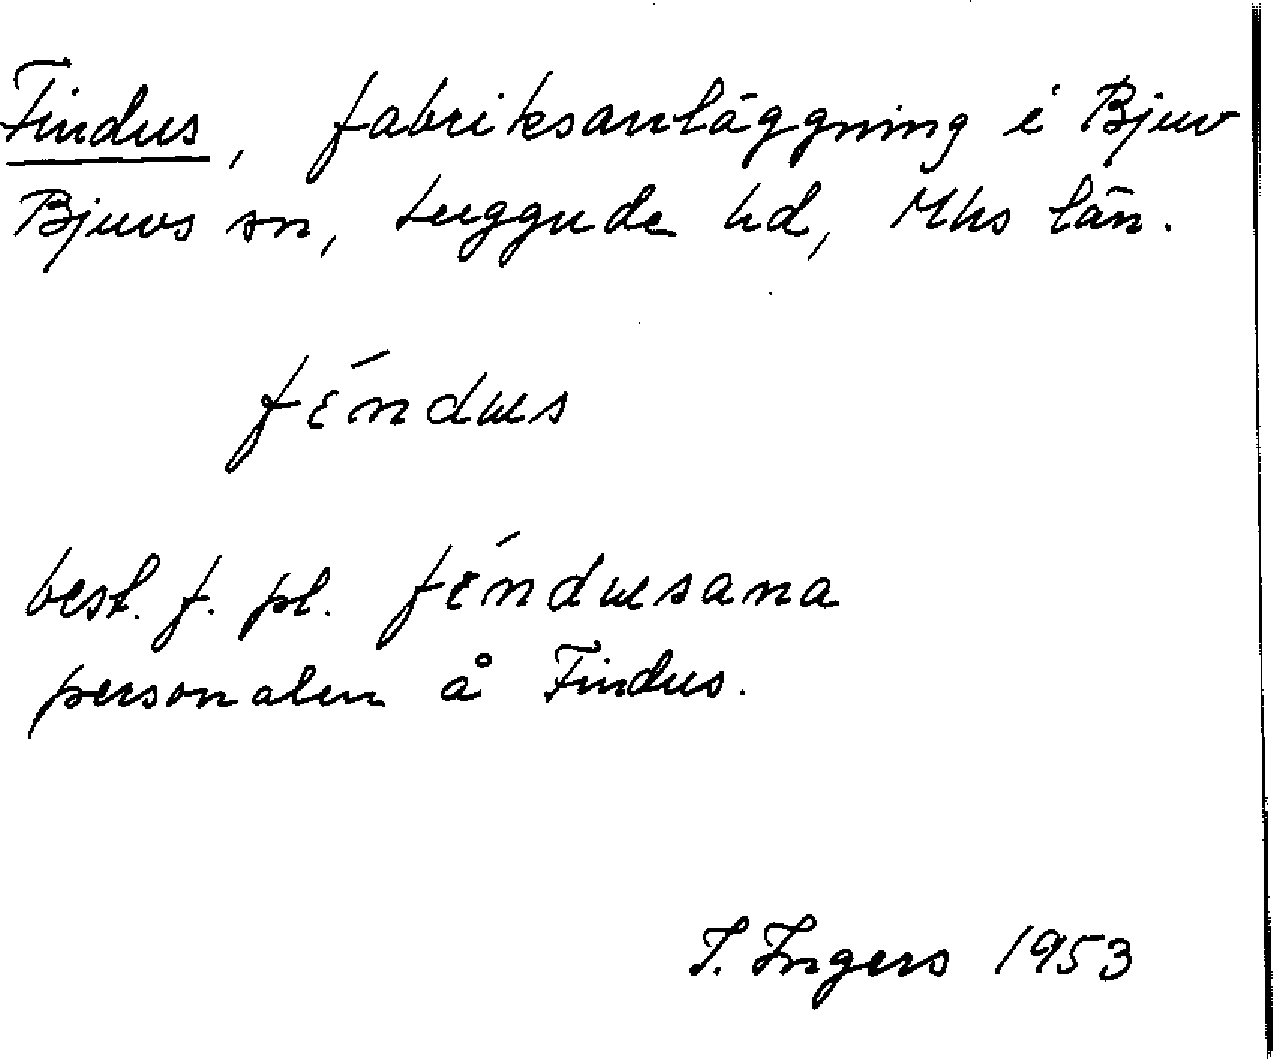 Findus, fabriksanläggning i Bjuv
Bjuvs sn, Luggude hd, Mhs län.
fɛ́ndɯs
best. f. pl. fɛ́ndɯsana
personalen å Findus.
I. Ingers 1953